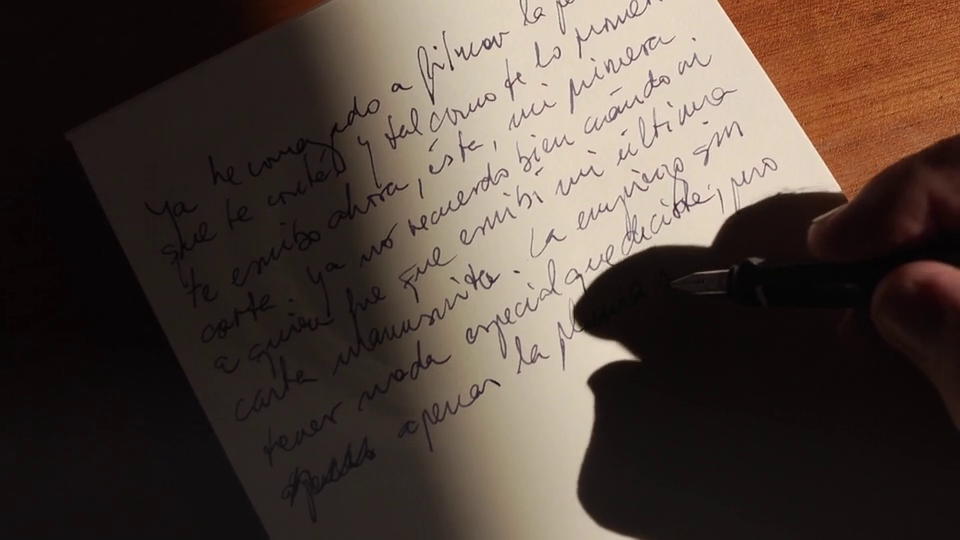 Ya he comenzado a filmar la pe
que te conté, y tal como te lo prometí
te escribo ahora, ésta, mi primera
carta. Ya no recuerdo bien cuándo ni
a quien fue que escribí mi última
carta manuscrita. La empiezo sin
tener nada especial que decirte, pero
apenas la pluma